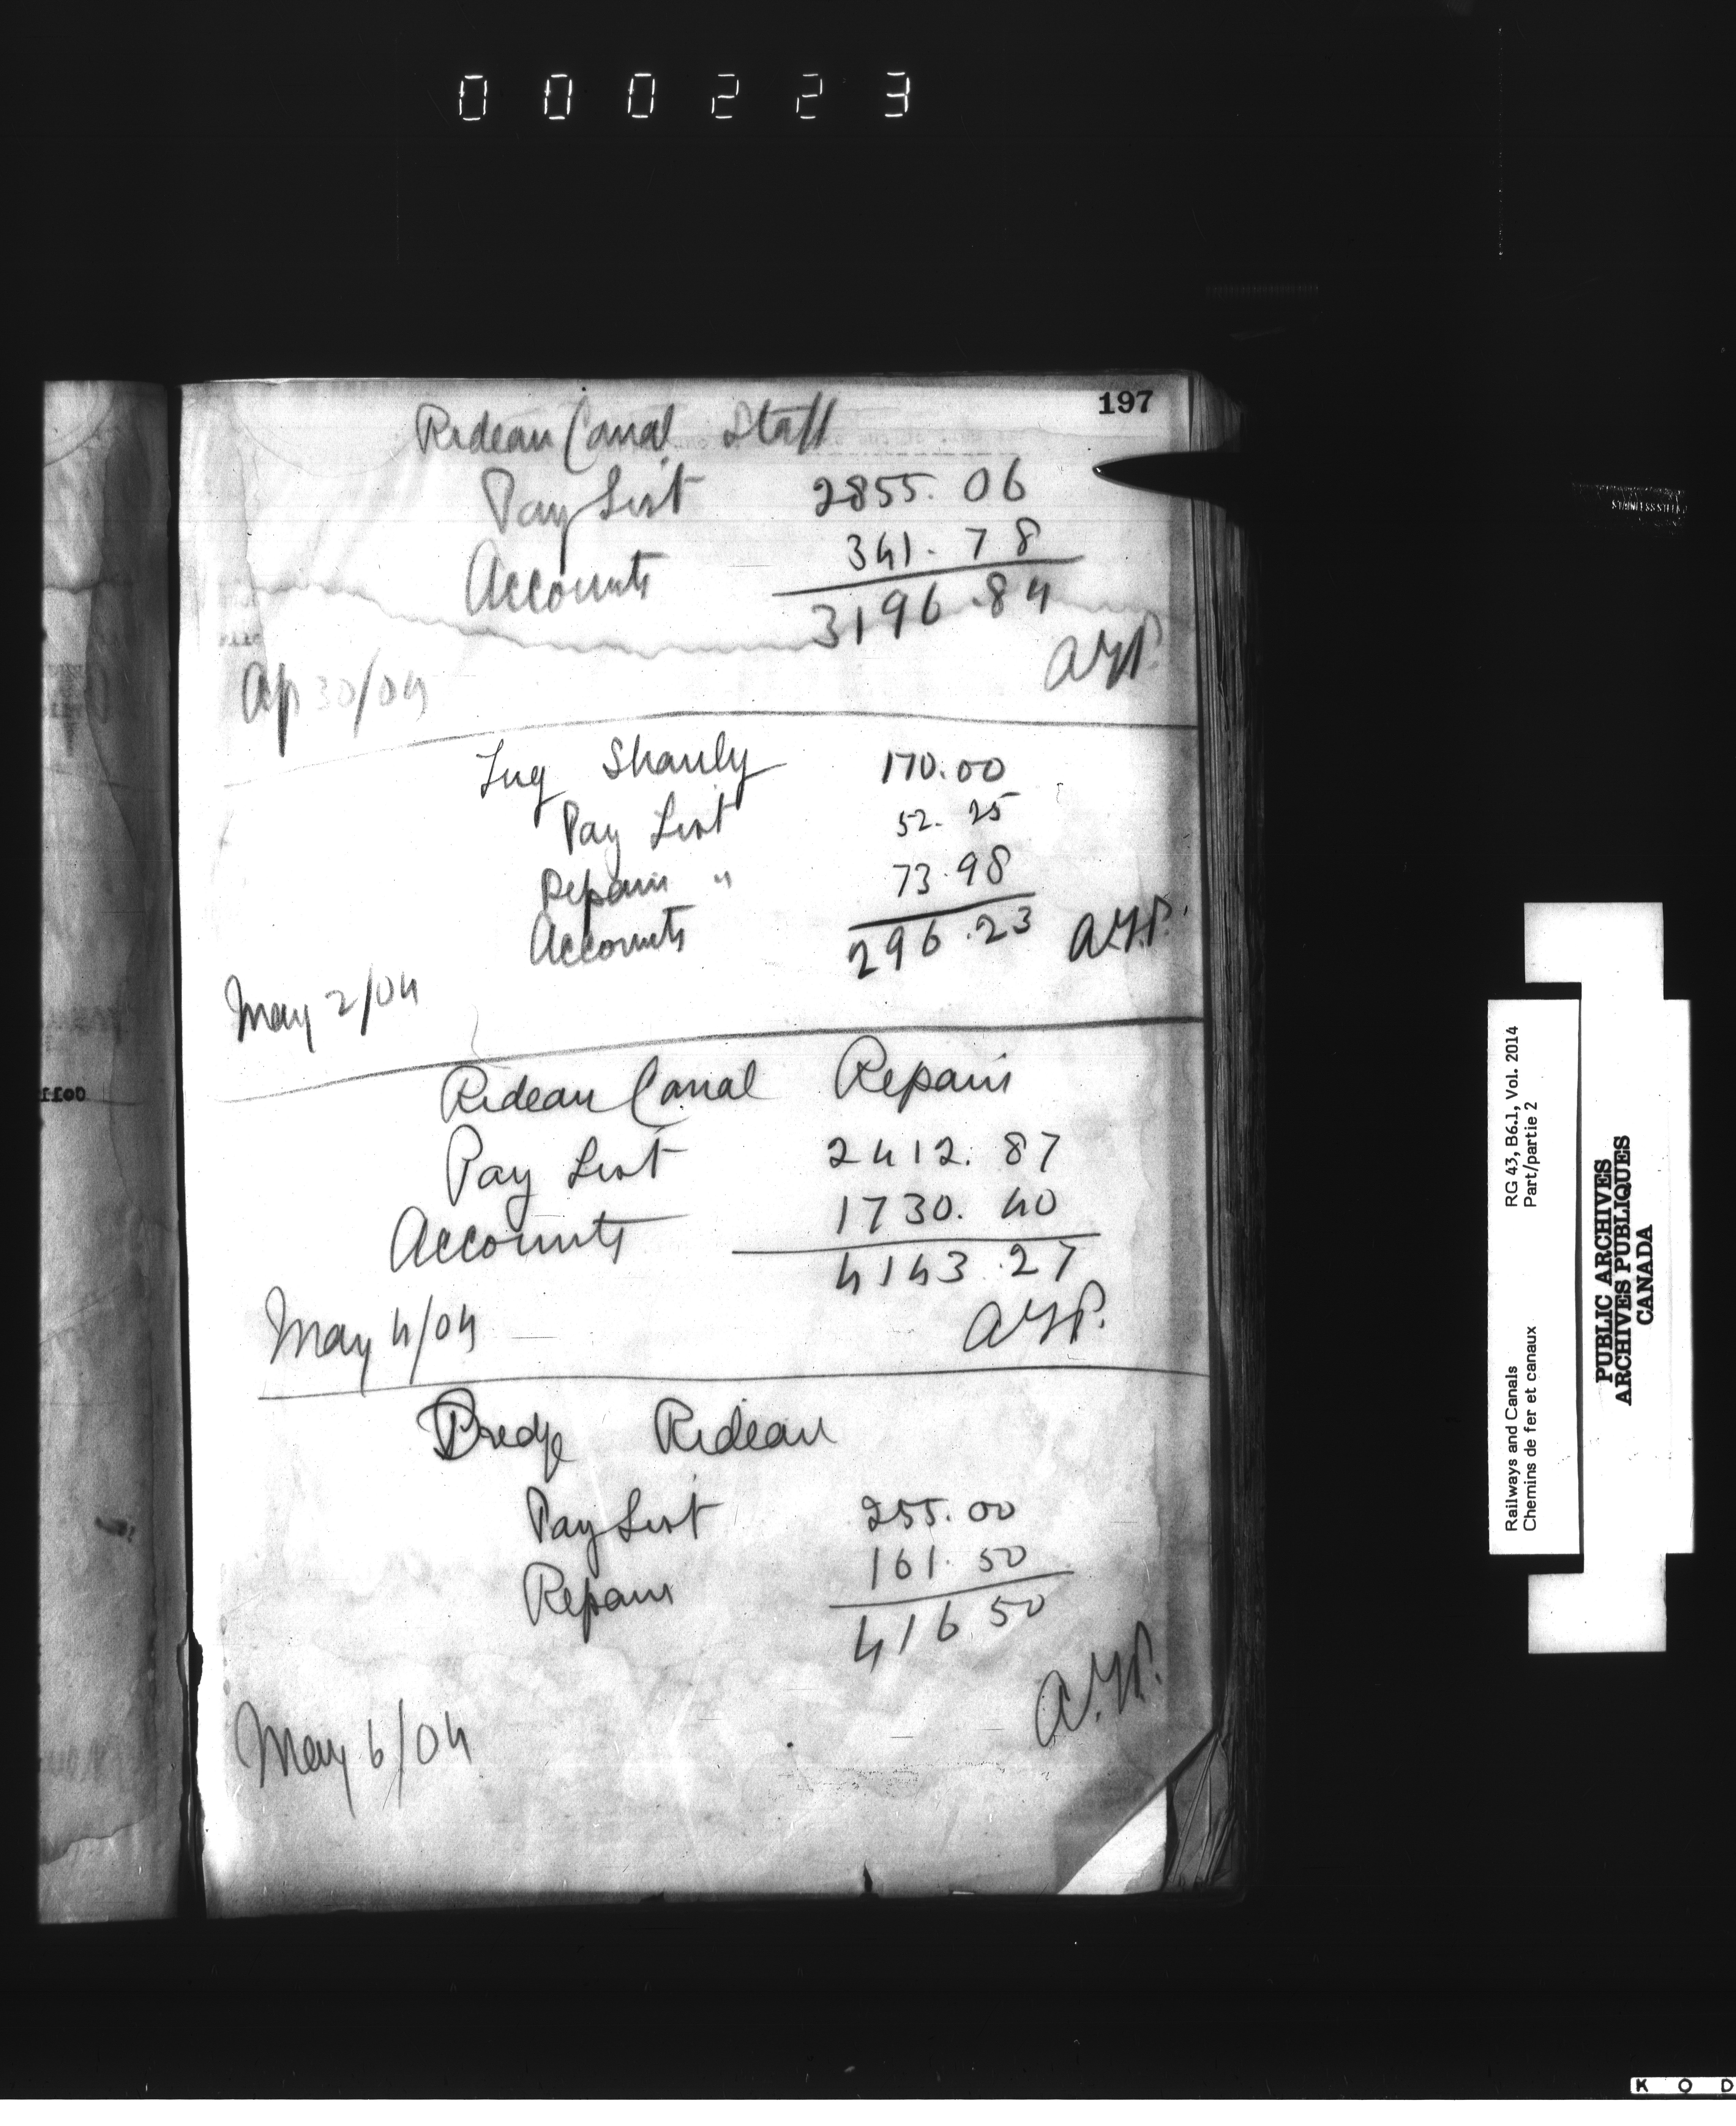 000223
197
Rideau Canal Staff
Pay List 2855.06
Accounts 341.78
3196.84
A.T.P.
Ap 30/04
Tug Shanly
Pay List 170.00
Repairs " 52.25
Accounts 73.98
296.23 A.T.P.
May 2/04
Rideau Canal Repairs
Pay List 2412.87
Accounts 1730.40
4143.27
May 4/04 A.T.P.
Dredge Rideau
Pay List 255.00
Repairs 161.50
416.50
A.T.P.
May 6/04
Railways and Canals RG 43, B6.1, Vol. 2014
Chemins de fer et canaux Part/partie 2
PUBLIC ARCHIVES
ARCHIVES PUBLIQUES
CANADA
K O D